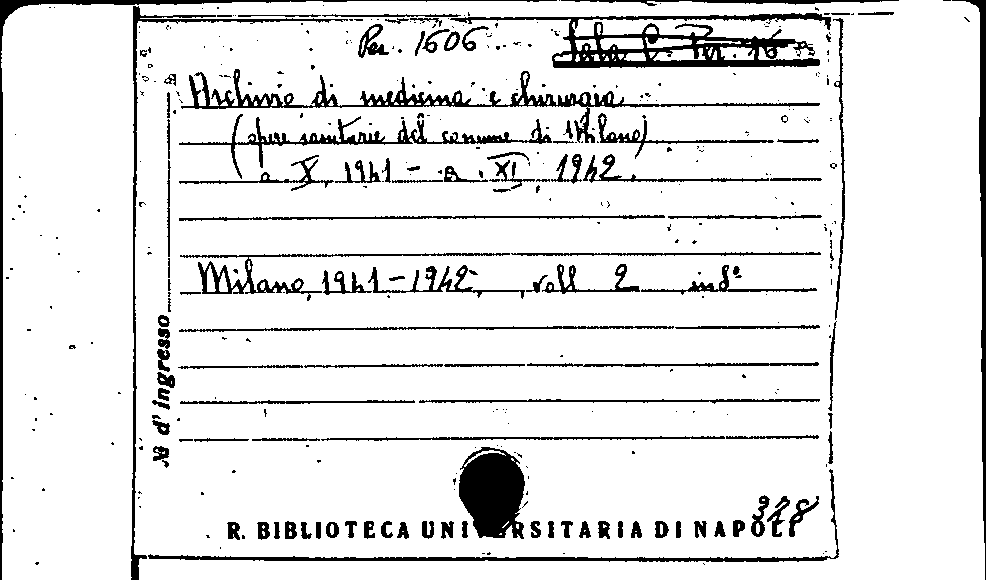 Per. 1606
Sala C. Per. 16
Archivio di medicina e chirurgia
(opere sanitarie del comune di Milano)
a. X, 1941 - a. XI, 1942.
Milano, 1941-1942, voll 2 in 8º
№ d'ingresso
318
R. BIBLIOTECA UNIVERSITARIA DI NAPOLI